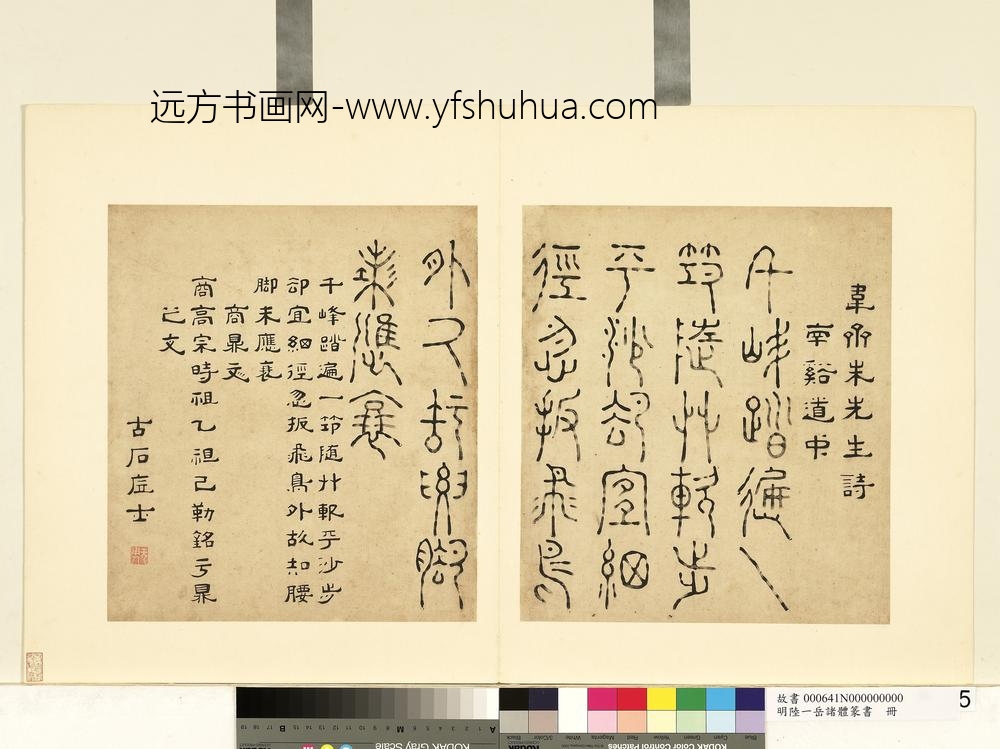 远方书画网-www.yfshuhua.com
韋齋朱先生詩
南谿道中
千峰踏遍一
筇隨艸軟步
平沙却宜細
徑忽扳飛鳥
外故知脚
未應衰
千峰踏遍一筇随艸軟平沙步
却宜細徑忽扳飛鳥外故知腰
脚未應衰
商鼎文
商高宗時祖乙祖己勒銘于鼎
之文
古石居士
故書 000641N000000000
明陸一岳諸體篆書 冊
5
KODAK Gray Scale
KODAK Color Control Patches
Blue Cyan Green Yellow Red Magenta White 3/Color Black